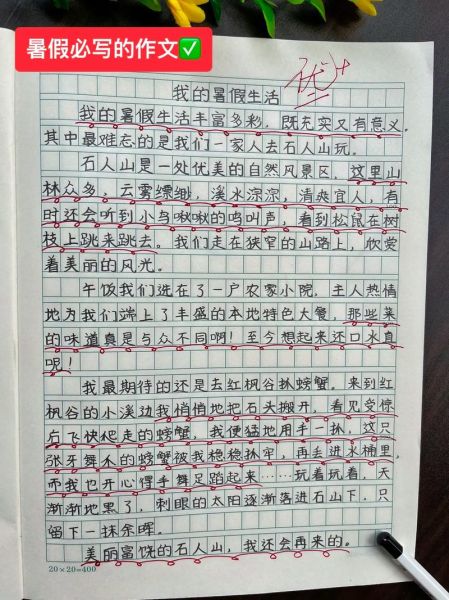 暑假必写的作文✅
优+
我的暑假生活
我的暑假生活丰富多彩，既充实又有意义。
其中最难忘的是我们一家人去石人山玩。
石人山是一处优美的自然风景区，这里山
林众多，云雾缥缈，溪水淙淙，清爽宜人，有
时还会听到小鸟啾啾的鸣叫声，看到松鼠在树
枝上跳来跳去。我们走在狭窄的山路上，欣赏
着美丽的风光。
午饭我们选在了一户农家小院，主人热情
地为我们端上了丰盛的本地特色大餐，那些菜
的味道真是与众不同啊！至今想起来还口水直
呢！
我最期待的还是去红枫谷抓螃蟹。来到红
枫谷的小溪边我悄悄地把石头搬开，看见受惊
后飞快爬走的螃蟹，我便猛地用手一抓，这只
张牙舞爪的螃蟹被我稳稳抓牢，再丢进水桶里，
而我也开心得手舞足蹈起来……玩着玩着，天
渐渐地黑了，刺眼的太阳逐渐落进石山下，只
留下一抹余晖。
美丽富饶的石人山，我还会再来的。
20×20=400